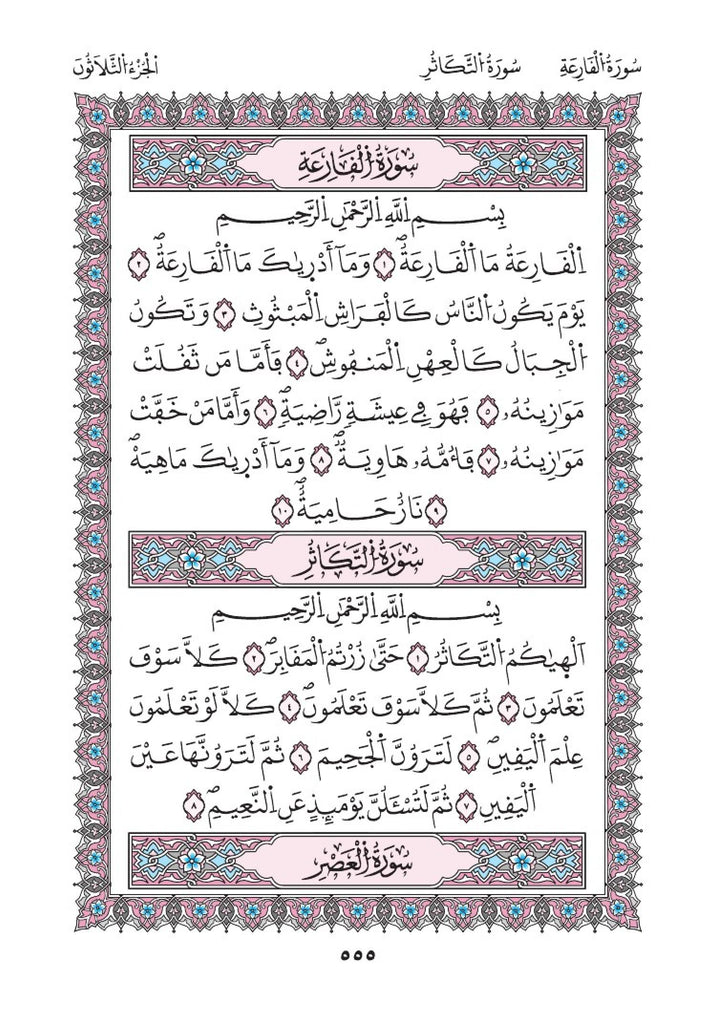 سُورَةُ الْقَارِعَةِ سُورَةُ التَّكَاثُرِ الْجُزْءُ الثَّلَاثُونَ
سُورَةُ الْقَارِعَةِ
بِسْمِ اللَّهِ الرَّحْمَٰنِ الرَّحِيمِ
اَ۬لْقَارِعَةُ مَا اَ۬لْقَارِعَةُۖ ١ وَمَآ أَدْر۪يٰكَ مَا اَ۬لْقَارِعَةُۖ ٢
يَوْمَ يَكُونُ اُ۬لنَّاسُ كَالْفَرَاشِ اِ۬لْمَبْثُوثِ ٣ وَتَكُونُ
اُ۬لْجِبَالُ كَالْعِهْنِ اِ۬لْمَنفُوشِۖ ٤ فَأَمَّا مَن ثَقُلَتْ
مَوَٰزِينُهُۥ ٥ فَهُوَ فِے عِيشَةٖ رَّاضِيَةٖۖ ٦ وَأَمَّا مَنْ خَفَّتْ
مَوَٰزِينُهُۥ ٧ فَأُمُّهُۥ هَاوِيَةٞۖ ٨ وَمَآ أَدْر۪يٰكَ مَا هِيَهْۖ
٩ نَارٌ حَامِيَةٌۖ ١٠
سُورَةُ التَّكَاثُرِ
بِسْمِ اللَّهِ الرَّحْمَٰنِ الرَّحِيمِ
أَلْه۪يٰكُمُ اُ۬لتَّكَاثُرُ ١ حَتَّىٰ زُرْتُمُ اُ۬لْمَقَابِرَۖ ٢ كَلَّا سَوْفَ
تَعْلَمُونَ ٣ ثُمَّ كَلَّا سَوْفَ تَعْلَمُونَۖ ٤ كَلَّا لَوْ تَعْلَمُونَ
عِلْمَ اَ۬لْيَقِينِۖ ٥ لَتَرَوُنَّ اَ۬لْجَحِيمَ ٦ ثُمَّ لَتَرَوُنَّهَا عَيْنَ
اَ۬لْيَقِينِ ٧ ثُمَّ لَتُسْـَٔلُنَّ يَوْمَئِذٍ عَنِ اِ۬لنَّعِيمِۖ ٨
سُورَةُ الْعَصْرِ
٥٥٥